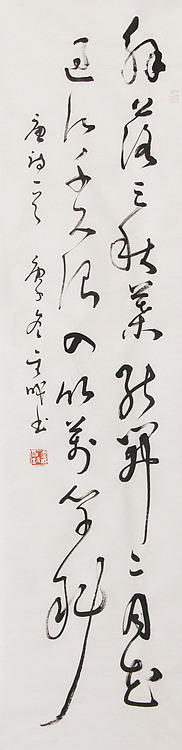 解落三秋葉能開二月花
過江千尺浪入竹萬竿斜
唐詩一首 庚子冬